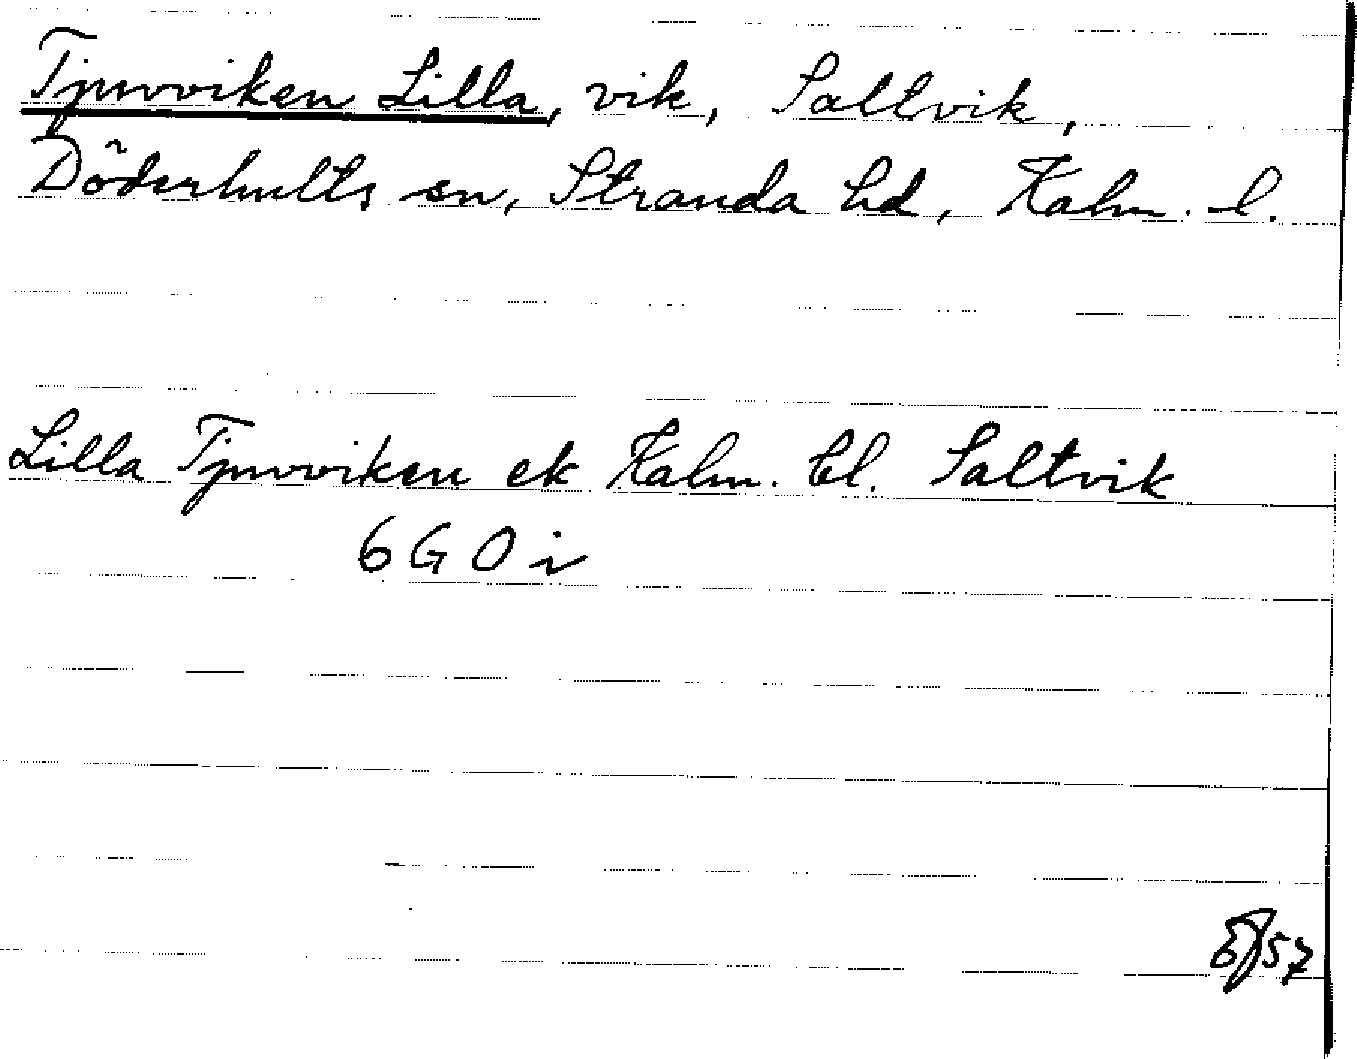 Tjuvviken Lilla, vik, Saltvik,
Döderhults sn, Stranda hd, Kalm. l.
Lilla Tjuvviken ek Kalm. bl. Saltvik
6 G 0 i
57